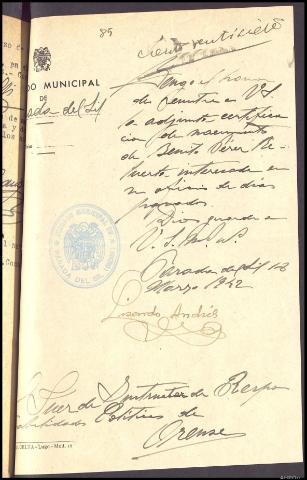 85
ciento veintisiete
DO MUNICIPAL
DE
Parada del Sil
Tengo el honor
de remitir a V.S.
la adjunta certifica
cion de nacimiento
de Benito Perez Re
puerta interesada en
su oficio de dias
pasados.
Dios guarde a
V.S. m. a.
Parada del Sil 13
Marzo 1942
JUZGADO MUNICIPAL
PARADA DEL SIL
Lisardo Andrés
Juez de Instructor de Respo
sabilidades Politicas de
Orense